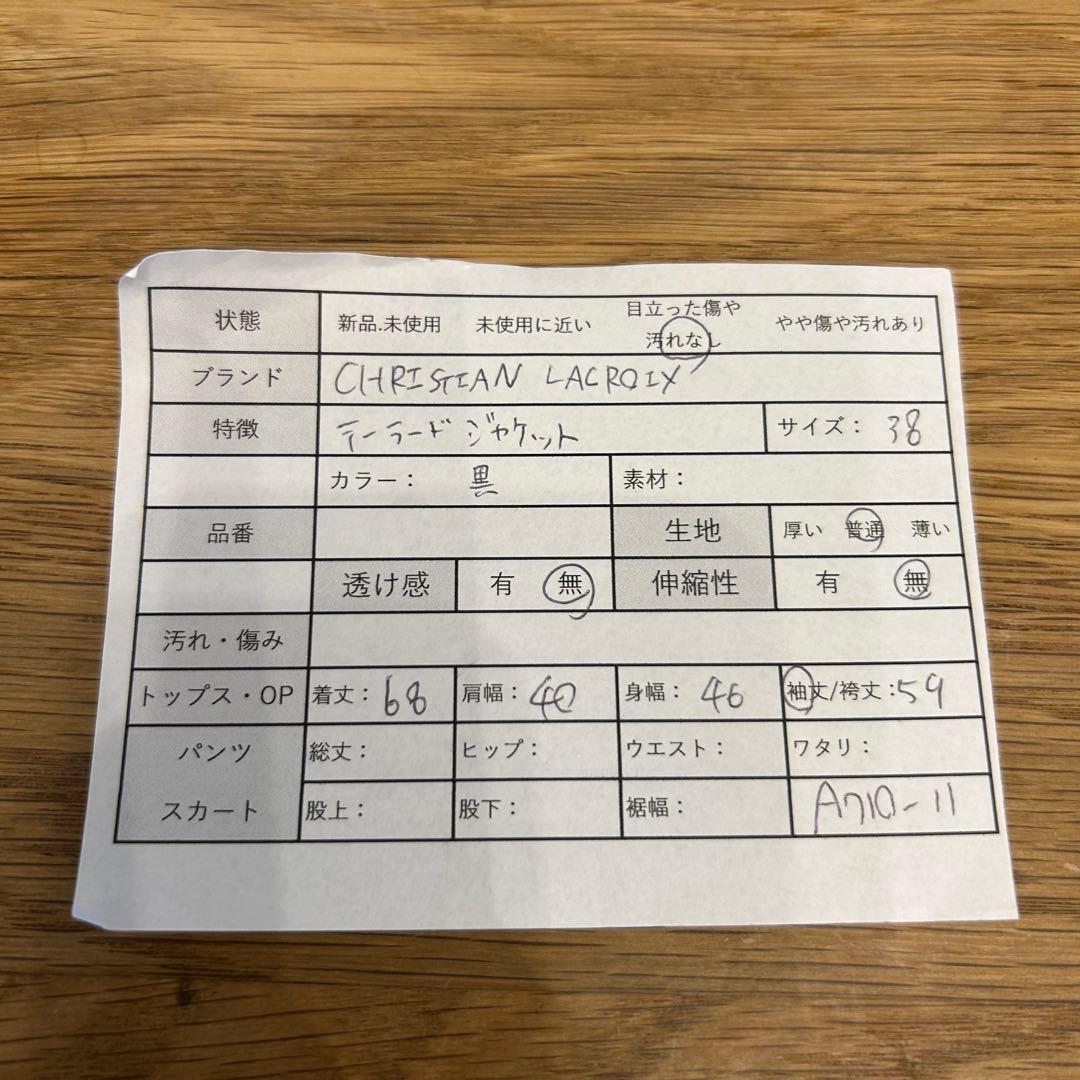 状態 新品.未使用 未使用に近い 目立った傷や汚れなし やや傷や汚れあり
ブランド CHRISTIAN LACROIX
特徴 テーラードジャケット サイズ： 38
カラー： 黒 素材：
品番 生地 厚い 普通 薄い
透け感 有 無 伸縮性 有 無
汚れ・傷み
トップス・OP 着丈：68 肩幅：40 身幅：46 袖丈/袴丈：59
パンツ 総丈： ヒップ： ウエスト： ワタリ：
スカート 股上： 股下： 裾幅： A710-11